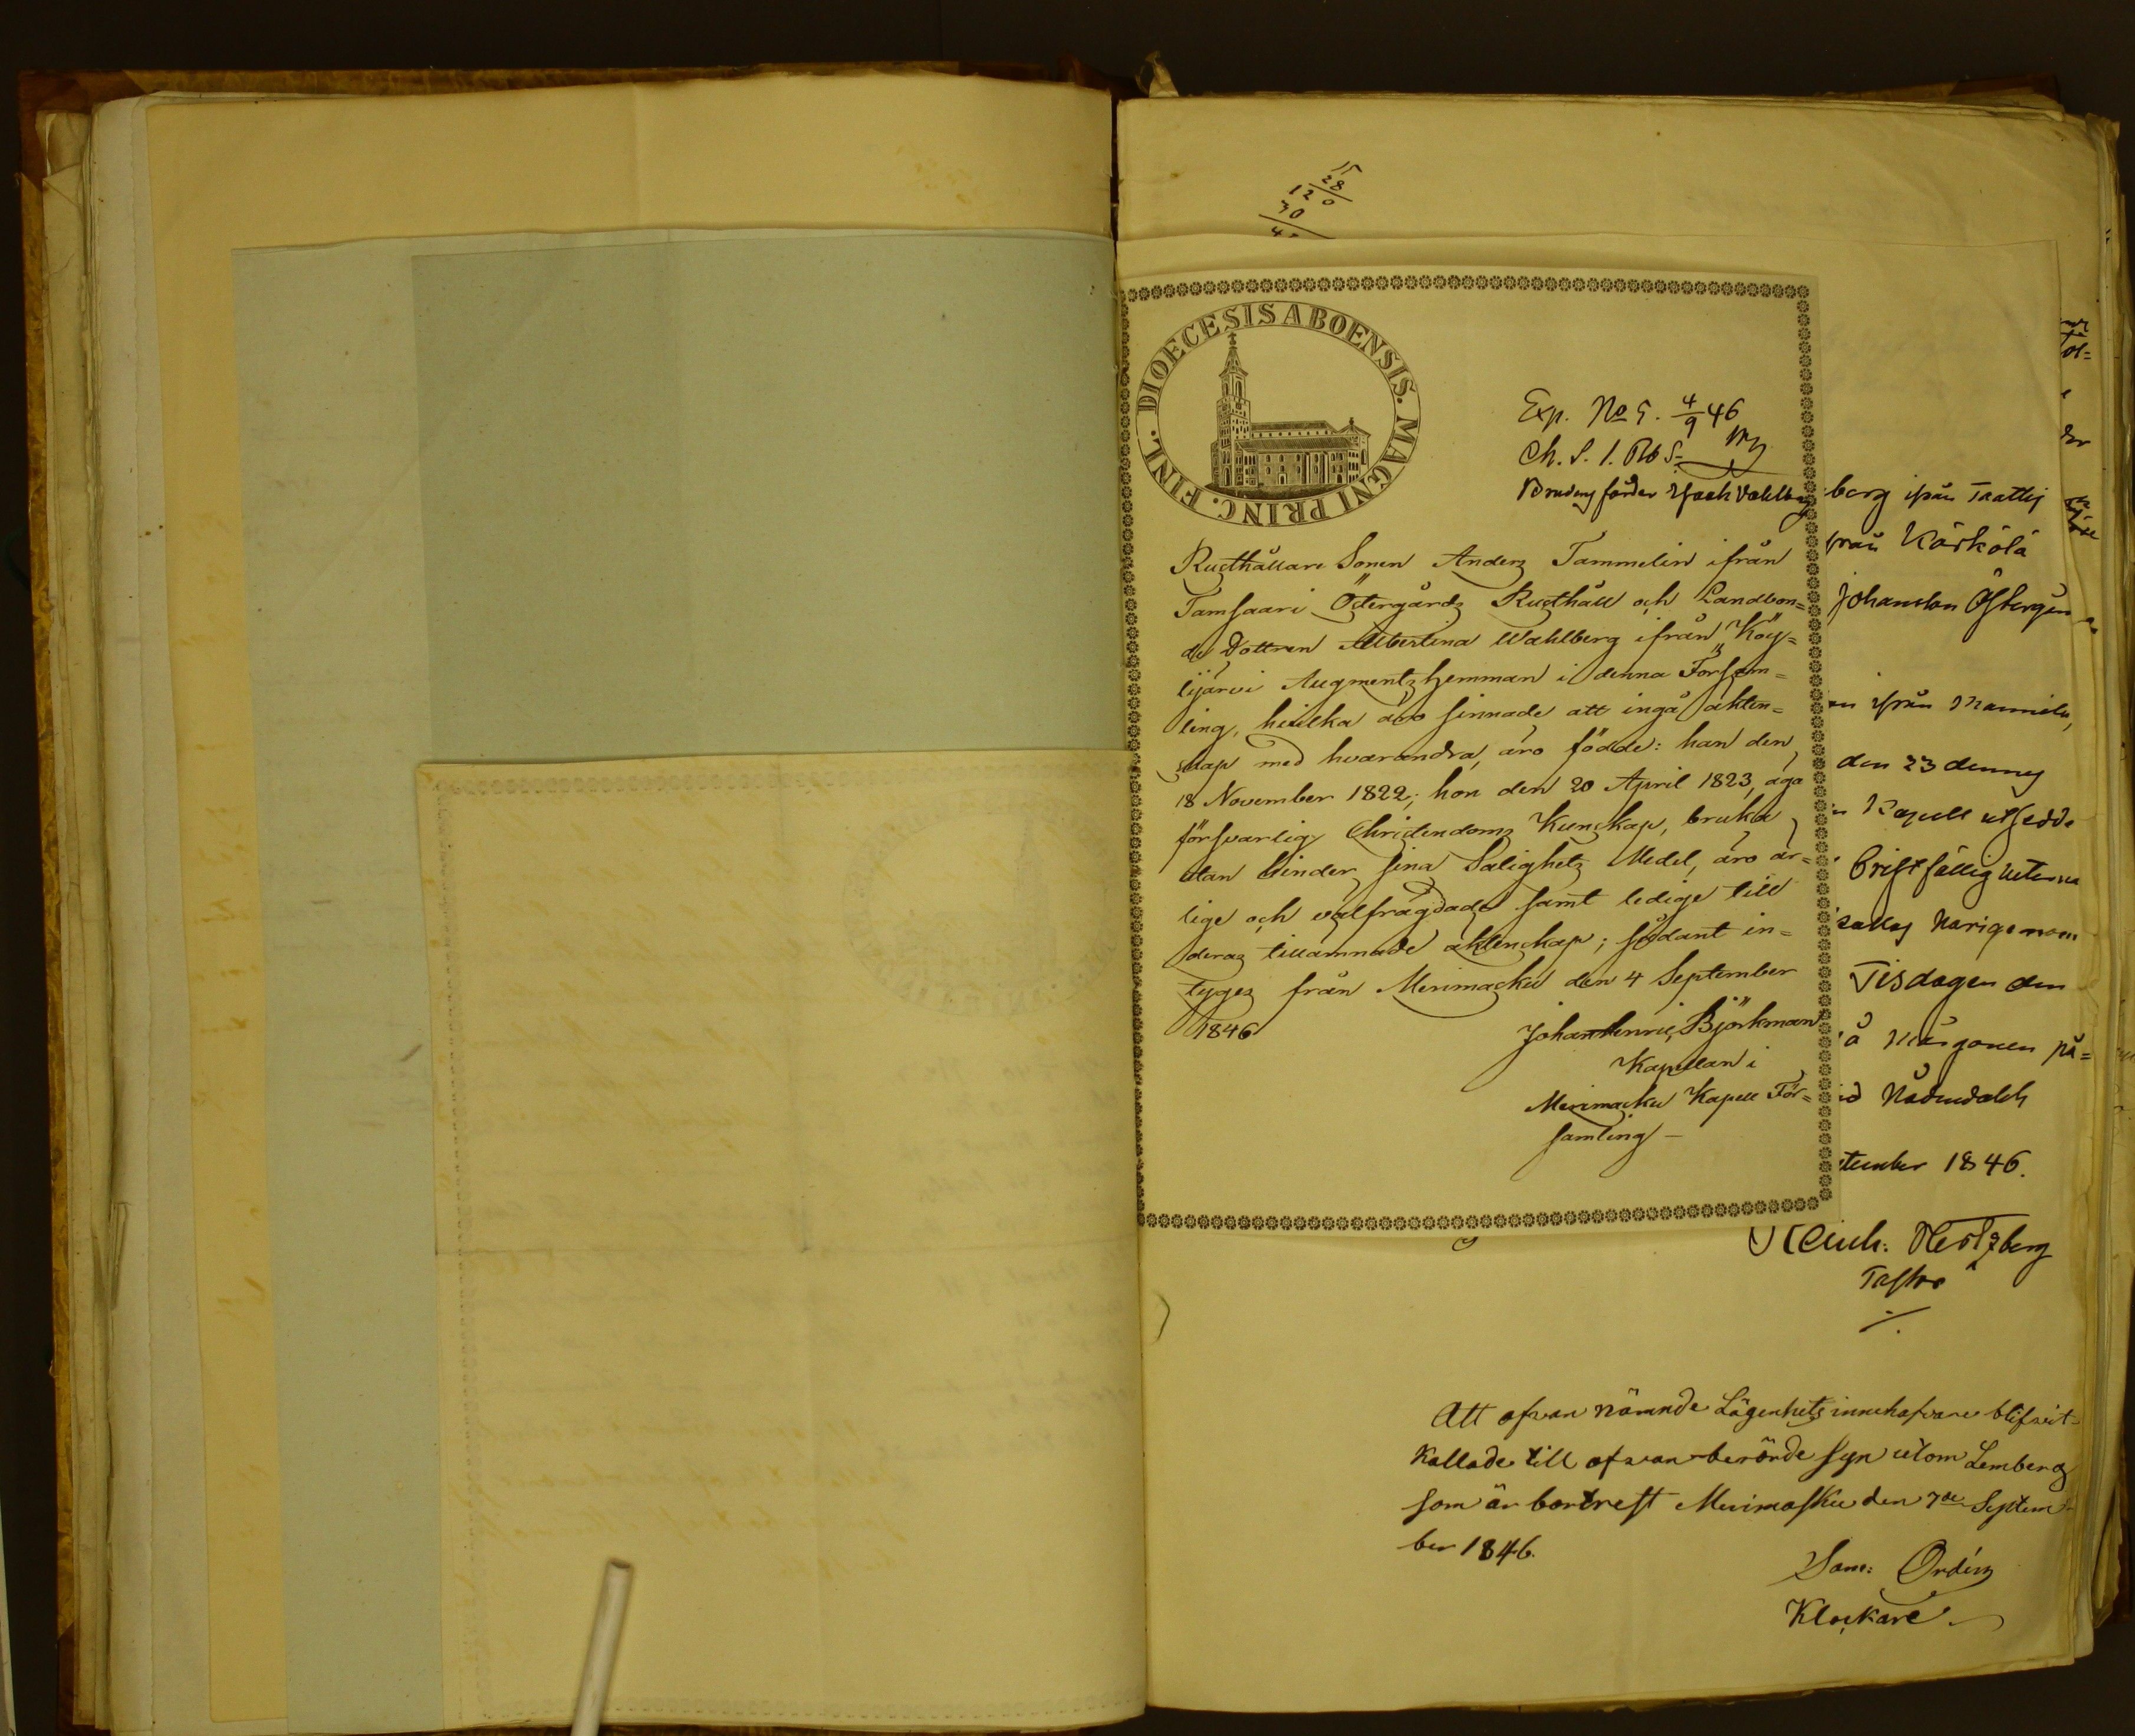 15
28
120
30
DIOECESIS ABOENSIS. MAGNI PRINC. FINL.
Exp. No 5. 4/9 46
Ch. S. 1. Rb S.
Brudens fader Isack Vahlberg
Rusthållare Sonen Anders Tammelin ifrån
Tamsaari Östergårds Rusthåll och Landbon=
de Dottren Albertina Wahlberg ifrån Köy=
lijärvi Augmentshemman i denna Försam=
ling, hvilka äro sinnade att ingå äkten=
skap med hvarandra, äro födde: han den
18 November 1822; hon den 20 April 1823, äga
försvarlig Christendoms Kunskap, bruka
utan hinder sina Salighets Medel, äro är=
lige och välfrägdade samt ledige till
deras tillämnade äktenskap; sådant in=
tygas från Merimasku den 4 September
1846
Johan Henric Björkman
Kapellan i
Merimasku Kapell För=
samling —
berg ifrån Taattis
från Kärkölä
Johansson Östergård
ifrån Mannila,
den 23 dennes
Kapell utsedde
Bristfälligheterna
kallas härigenom
Tisdagen den
Morgonen på=
Nådendahl
tember 1846.
Hertzberg
Pastor
Att ofvan nämnde Lägenhets innehafvare blifvit
Kallade till ofvan berörde syn utom Lemberg
som är bortrest Merimasku den 7de Septem=
ber 1846.
Sam: Ordén
Klockare